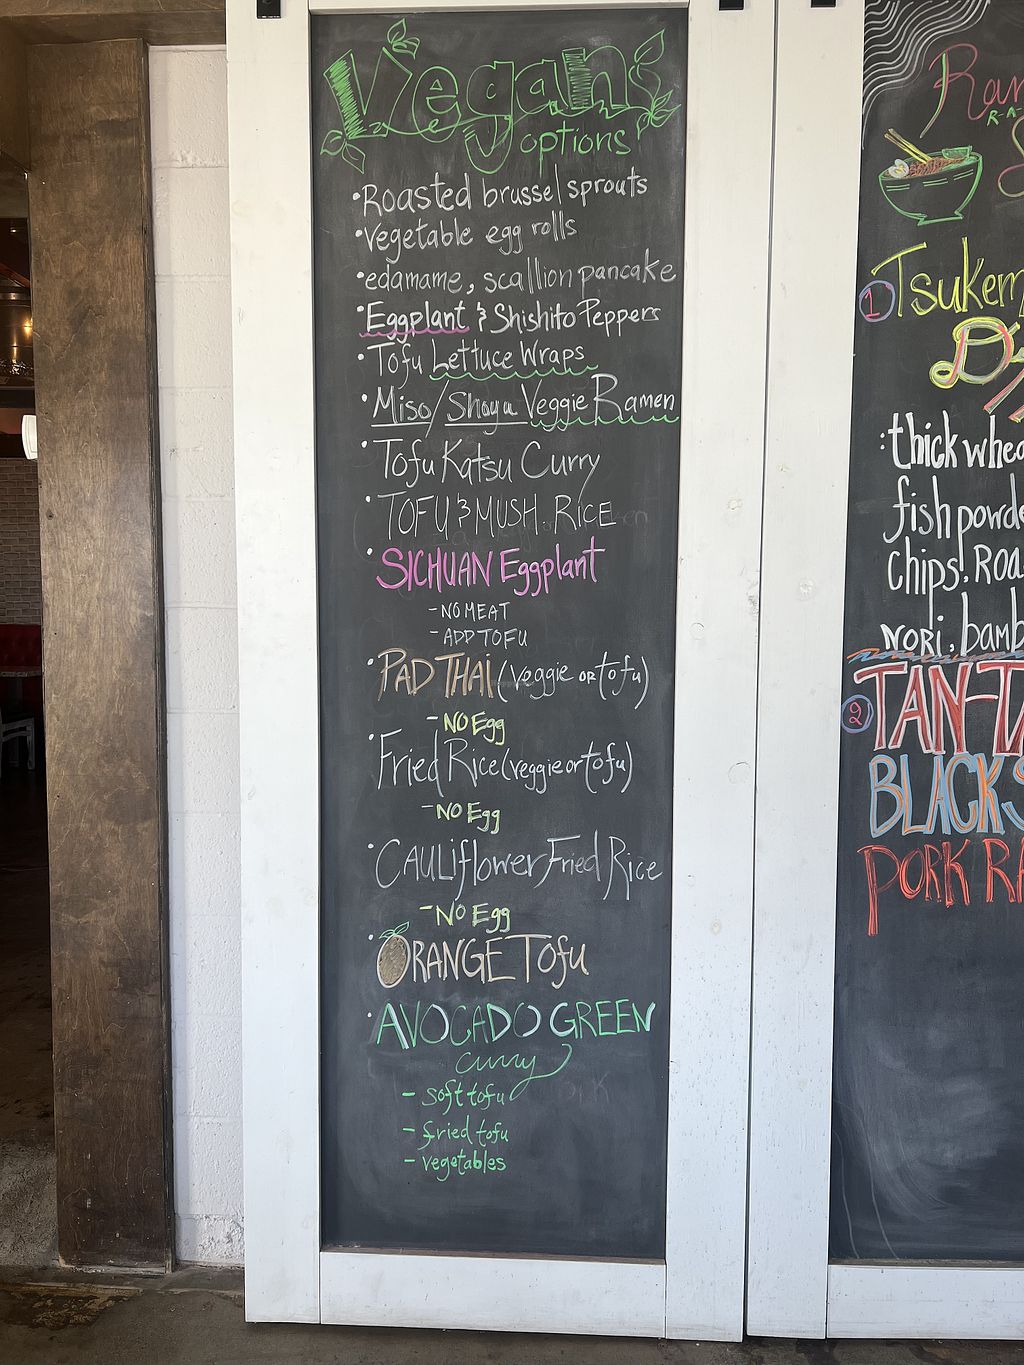 Vegan
options
• Roasted brussel sprouts
• Vegetable egg rolls
• edamame, scallion pancake
• Eggplant & Shishito Peppers
• Tofu Lettuce Wraps
• Miso/Shoyu Veggie Ramen
• Tofu Katsu Curry
• TOFU & MUSH. RICE
• SICHUAN Eggplant
- NO MEAT
- ADD TOFU
• PAD THAI (Veggie OR tofu)
- NO Egg
• Fried Rice (veggie or tofu)
- NO Egg
• CAULiflower Fried Rice
- NO Egg
• ORANGE TOfu
• AVOCADO GREEN
curry
- soft tofu
- fried tofu
- vegetables
Ram
R-A-
1 Tsukem
: thick whea
fish powde
chips. Roa
NORi, bamb
2 TAN-TA
BLACK S
PORK RA